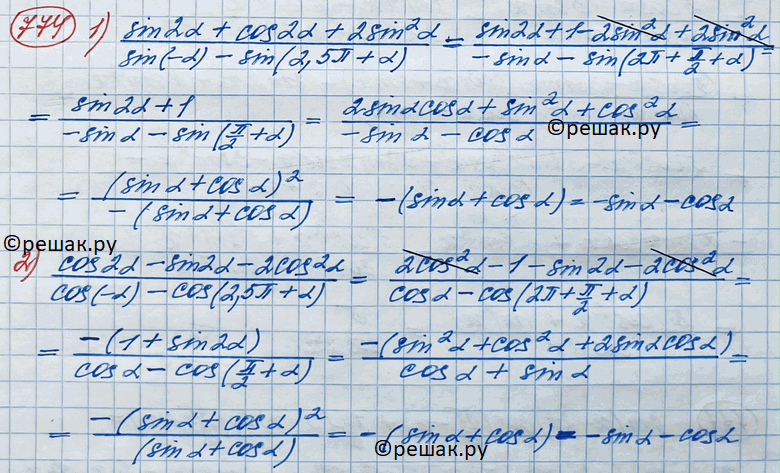 774 1) (sin2α + cos2α + 2sin²α)/(sin(-α) - sin(2,5π + α)) = (sin2α + 1 - 2sin²α + 2sin²α)/(-sinα - sin(2π + π/2 + α)) =
= (sin2α + 1)/(-sinα - sin(π/2 + α)) = (2sinαcosα + sin²α + cos²α)/(-sinα - cosα) =
©решак.ру
= (sinα + cosα)²/(-(sinα + cosα)) = -(sinα + cosα) = -sinα - cosα
©решак.ру
2) (cos2α - sin2α - 2cos2α)/(cos(-α) - cos(2,5π + α)) = (2cos²α - 1 - sin2α - 2cos²α)/(cosα - cos(2π + π/2 + α)) =
= (-(1 + sin2α))/(cosα - cos(π/2 + α)) = (-(sin²α + cos²α + 2sinαcosα))/(cosα + sinα) =
= (-(sinα + cosα)²)/((sinα + cosα)) = -(sinα + cosα) = -sinα - cosα
©решак.ру